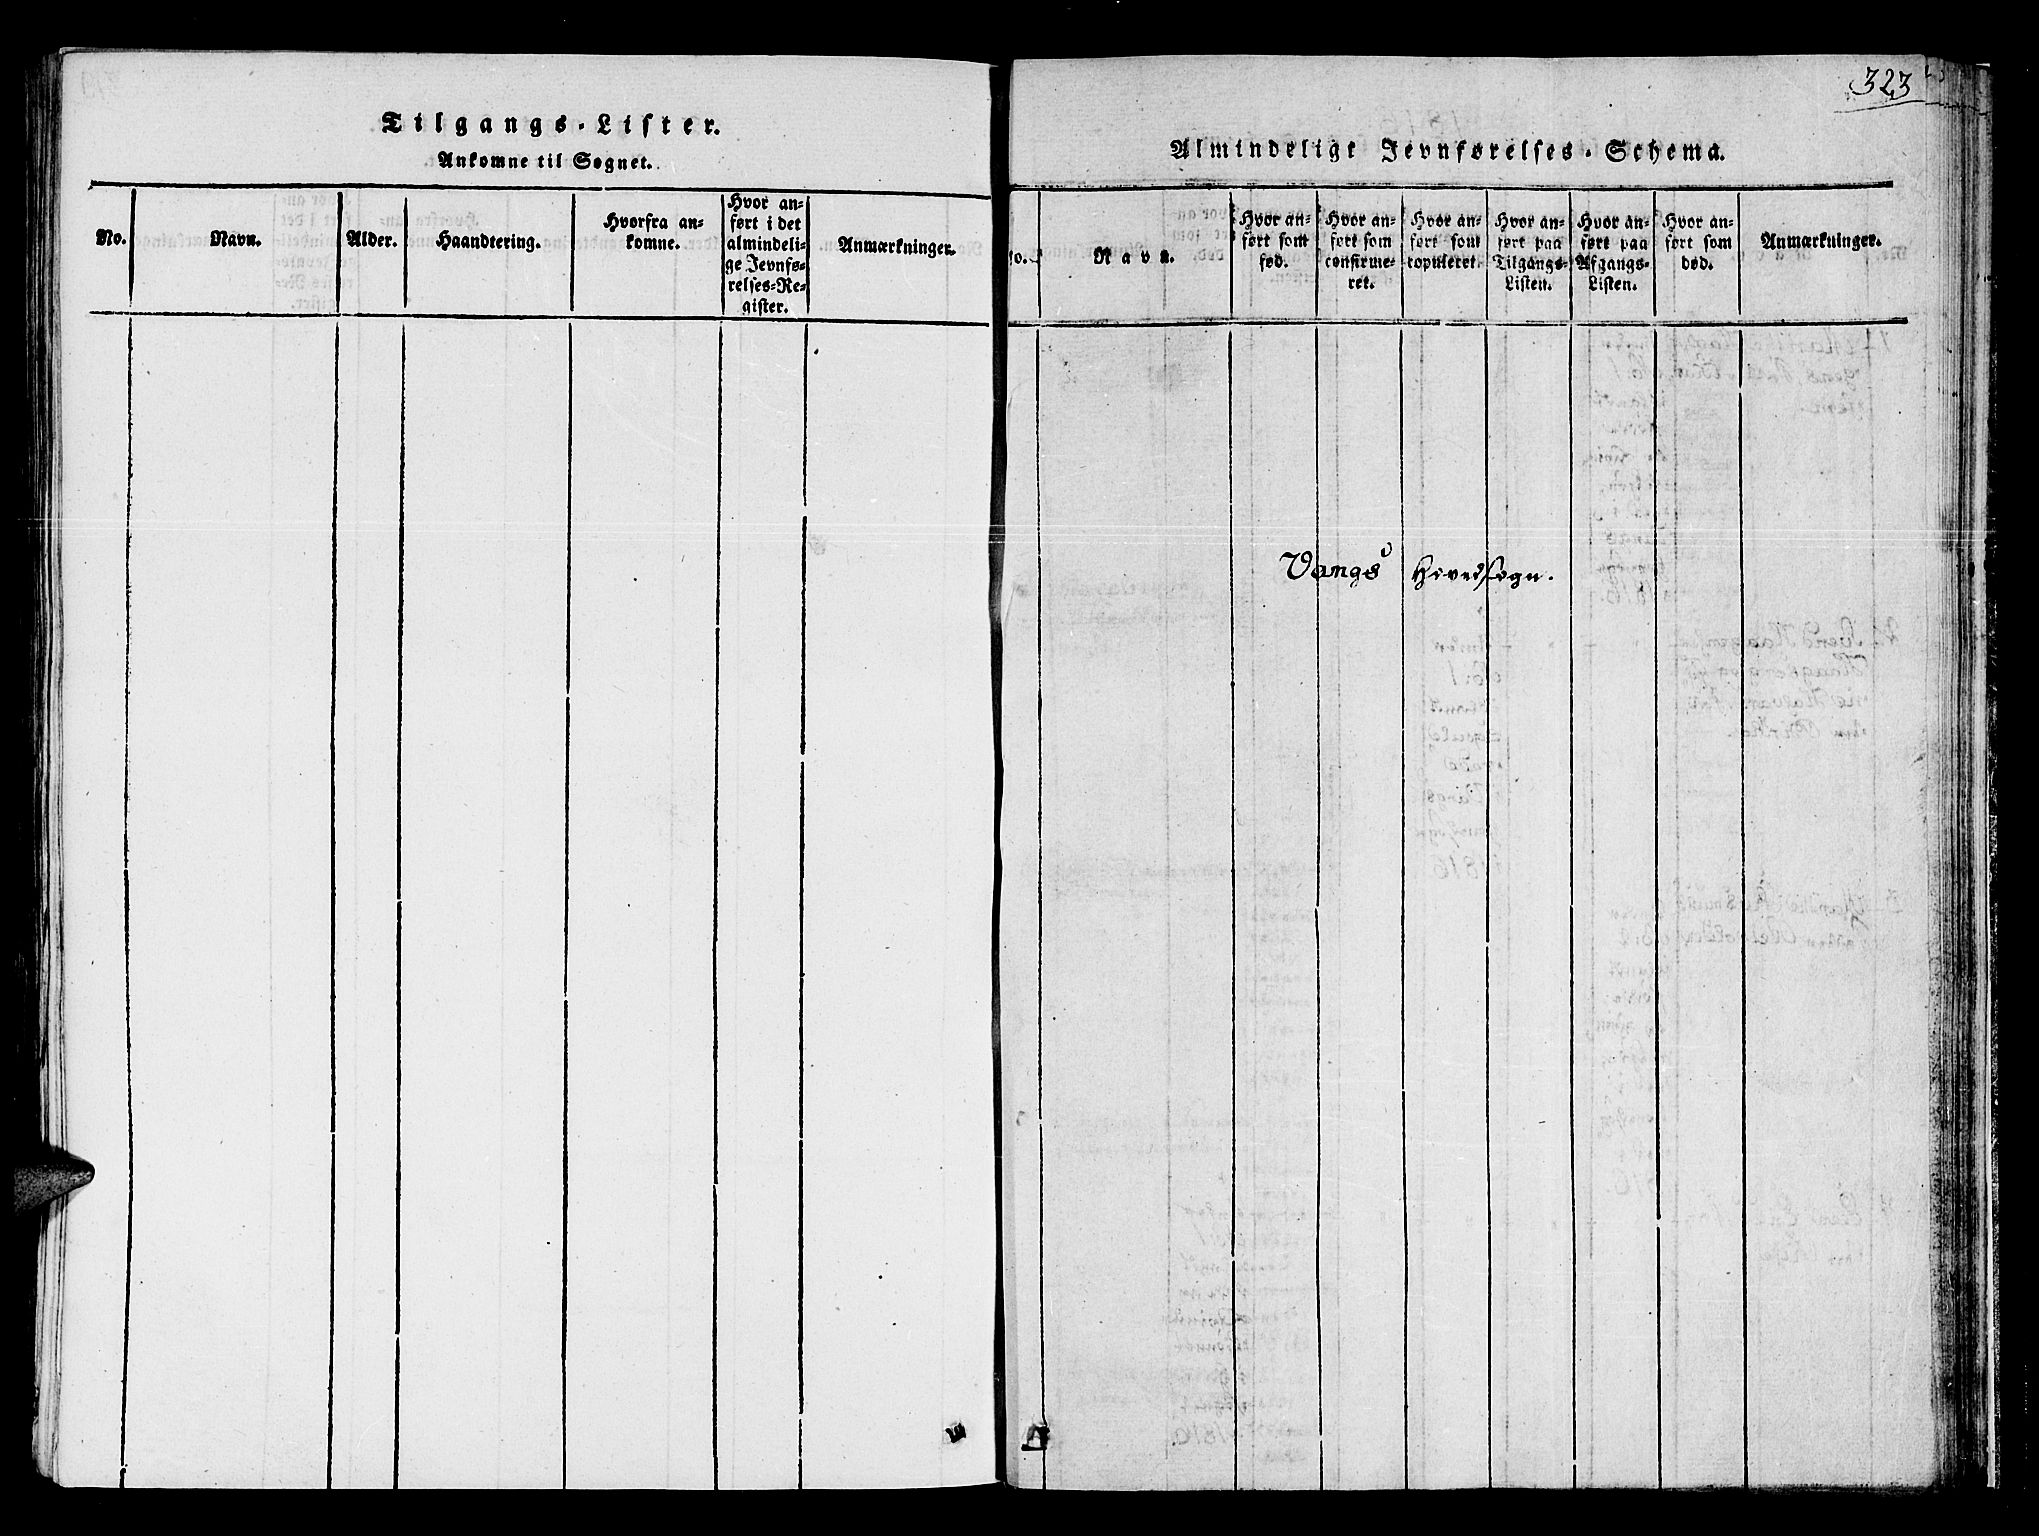 Tilgangs-Lister.
Ankomne til Sognet.
No.
Navn.
Alder.
Haandtering.
Hvorfra an=
komne.
Hvor an=
ført i det
almindeli=
ge Jevnfø=
relses=Re=
gister.
Anmærkninger.
323
Almindelige Jevnførelses-Schema.
No.
Navn.
Hvor an=
ført som
fød.
Hvor an=
ført som
confirme=
ret.
Hvor an=
ført som
copuleret.
Hvor an=
ført paa
Tilgangs=
Listen.
Hvor an=
ført paa
Afgangs=
Listen.
Hvor an=
ført som
død.
Anmærkninger.
Vangs Hovedsogn.